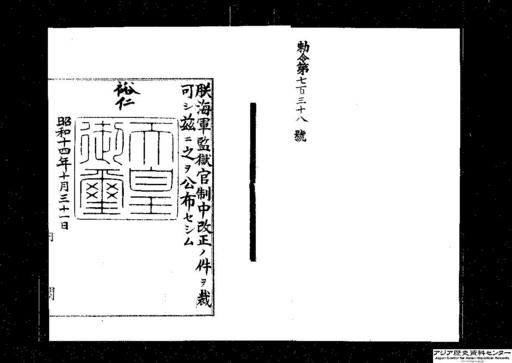 勅令第七百三十八號
朕海軍監獄官制中改正ノ件ヲ裁
可シ茲ニ之ヲ公布セシム
裕仁
天皇
御璽
昭和十四年十月三十一日
アジア歴史資料センター
Japan Center for Asian Historical Records